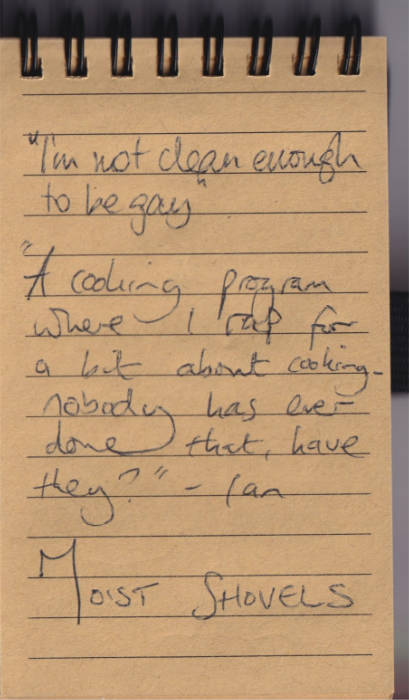 "I'm not clean enough
to be gay"
"A cooking program
where I rap for
a bit about cooking-
nobody has ever
done that, have
they?" - Ian
MOIST SHOVELS